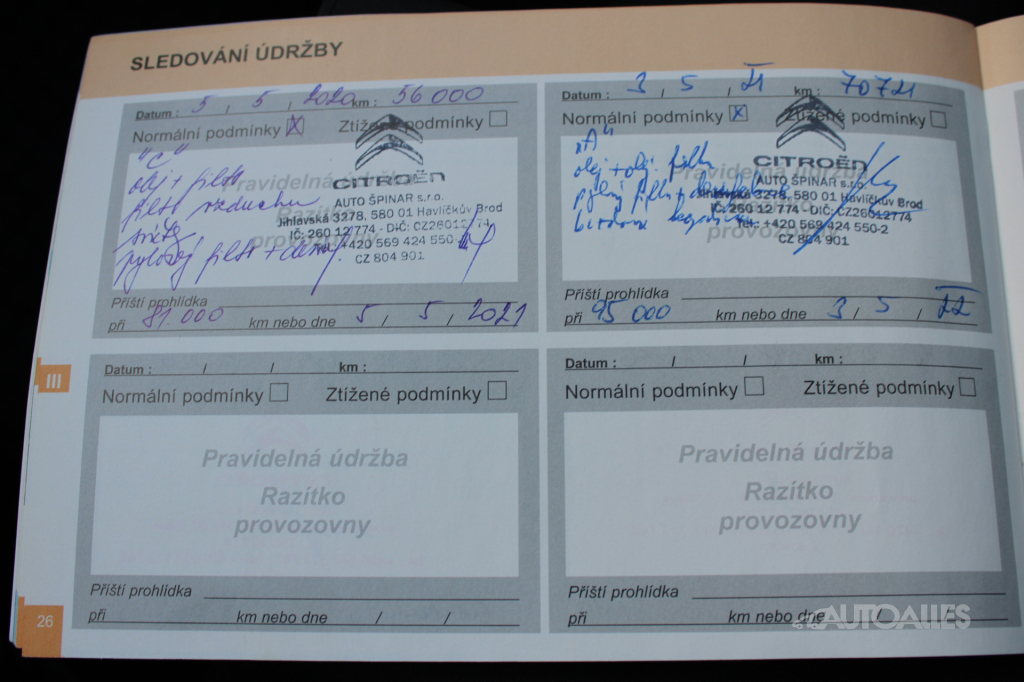 SLEDOVÁNÍ ÚDRŽBY
Datum : 5 / 5 / 2020 km : 56 000
Normální podmínky X Ztížené podmínky
"C"
olej + filtr
filtr vzduchu
pylový filtr +
Pravidelná údržba
Razítko
provozovny
CITROËN
AUTO ŠPINAR s.r.o.
Jihlavská 3278, 580 01 Havlíčkův Brod
IČ: 260 12 774 - DIČ: CZ26012774
+420 569 424 550-2
CZ 804 901
Příští prohlídka
při 81.000 km nebo dne 5 / 5 / 2021
Datum : 3 / 5 / 21 km : 70721
Normální podmínky x Ztížené podmínky
"A"
olej + olej. filtr
pylový filtr +
Pravidelná údržba
Razítko
provozovny
CITROËN
AUTO ŠPINAR s.r.o.
Jihlavská 3278, 580 01 Havlíčkův Brod
IČ: 260 12 774 - DIČ: CZ26012774
Tel.: +420 569 424 550-2
CZ 804 901
Příští prohlídka
při 95 000 km nebo dne 3 / 5 / 22
III
Datum : / / km :
Normální podmínky Ztížené podmínky
Pravidelná údržba
Razítko
provozovny
Příští prohlídka
při km nebo dne / /
Datum : / / km :
Normální podmínky Ztížené podmínky
Pravidelná údržba
Razítko
provozovny
Příští prohlídka
při km nebo dne / /
26
AUTOALLES